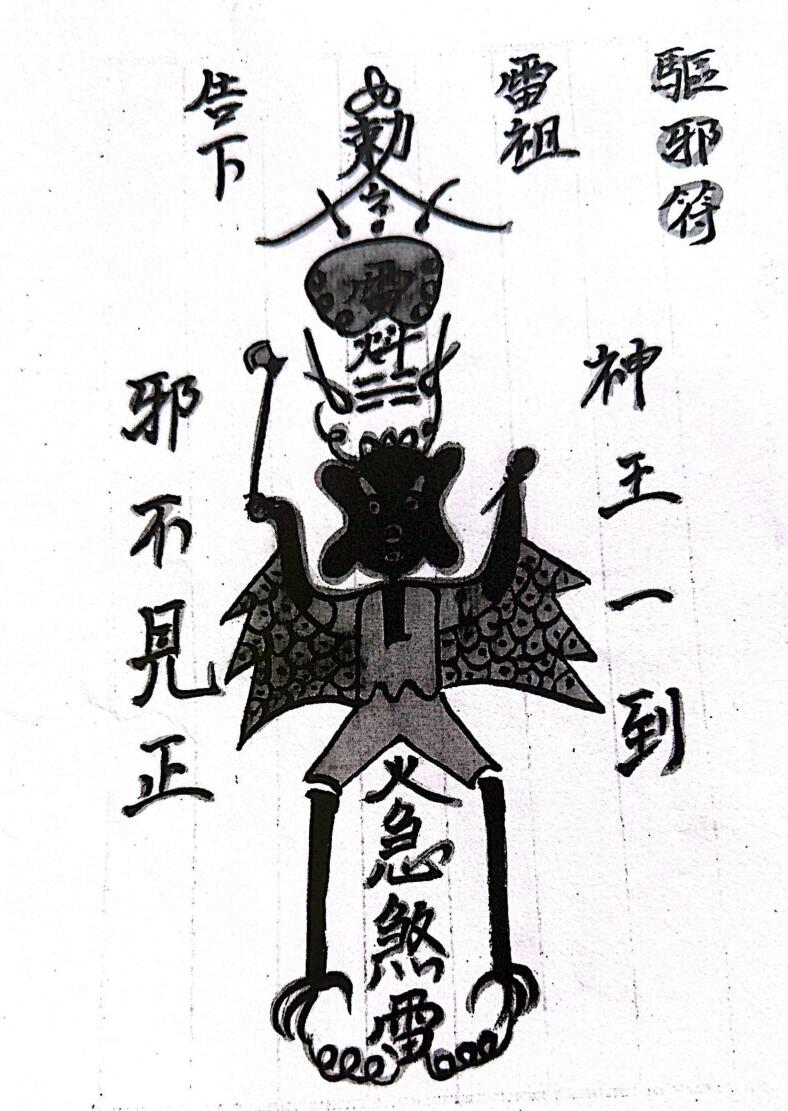 驅邪符
雷祖
告下
勅令
雷
神王一到
邪不見正
火急煞雷